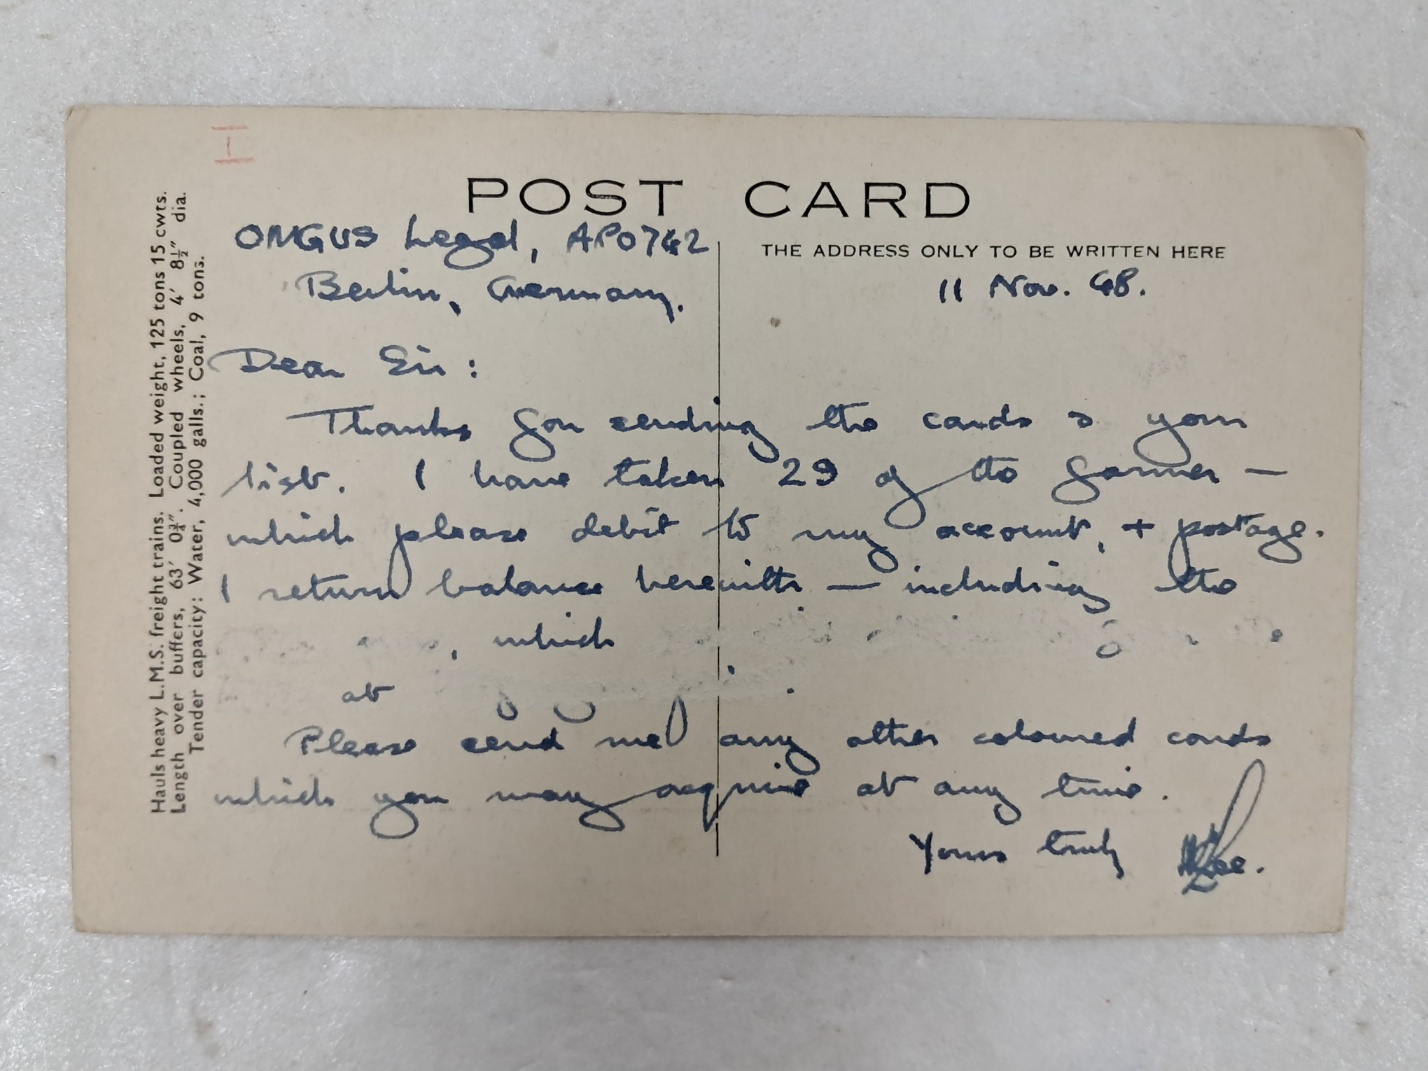 POST CARD
THE ADDRESS ONLY TO BE WRITTEN HERE
Hauls heavy L.M.S. freight trains. Loaded weight, 125 tons 15 cwts.
Length over buffers, 63' 0¾". Coupled wheels, 4' 8½" dia.
Tender capacity: Water, 4,000 galls.; Coal, 9 tons.
I
OMGUS Legal, APO742
Berlin, Germany.
11 Nov. 48.
Dear Sir:
Thanks for sending the cards & your
list. I have taken 29 of the former —
which please debit to my account, + postage.
I return balance herewith — including the
, which
at
Please send me any other coloured cards
which you may acquire at any time.
Yours truly